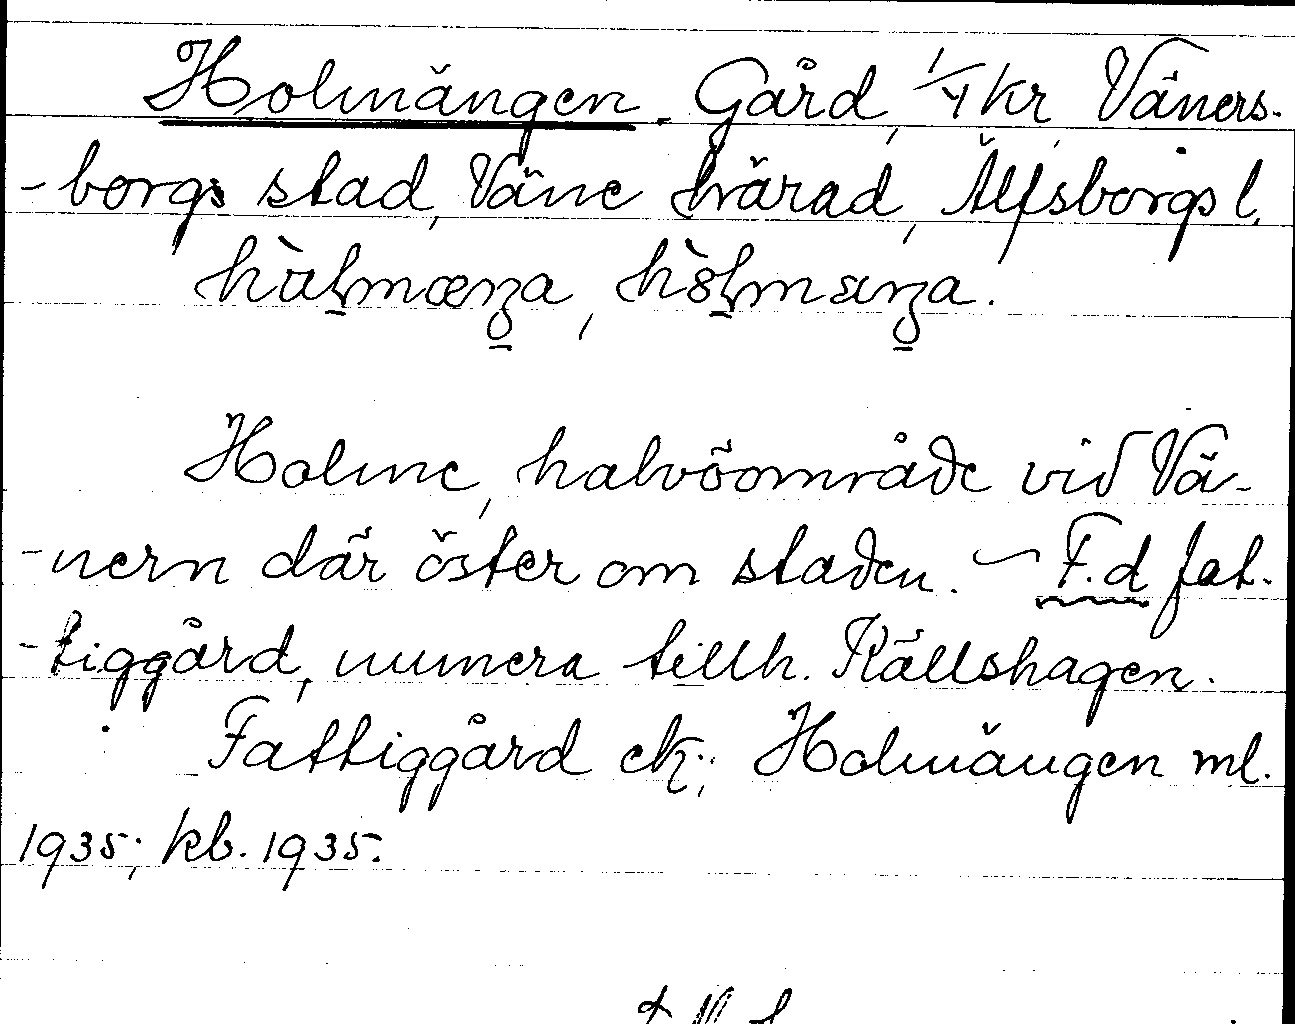 Holmängen. Gård, 1/4 kr, Väners-
-borgs stad, Väne härad, Älfsborgs l.
Holme, halvöområde vid Vä-
-nern där öster om staden. — F.d fat-
-tiggård, numera tillh. Källshagen.
Fattiggård ek.; Holmängen ml.
1935; kb. 1935.